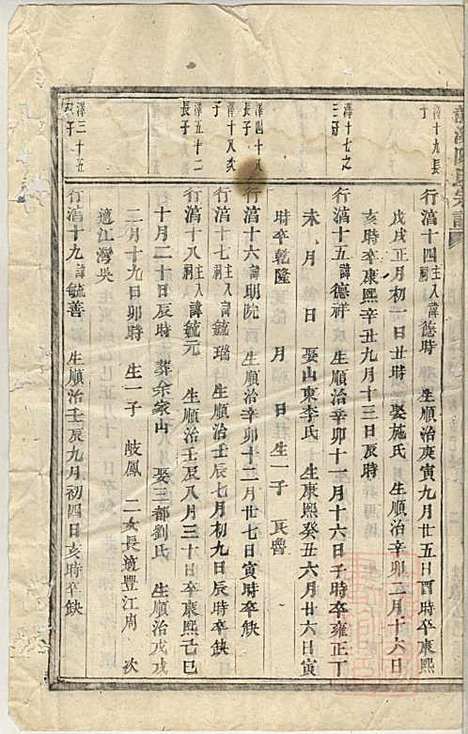 澤十九長
子
行滈十四主入祠諱德時　生順治庚寅九月廿五日酉時卒康熙
戊戌正月初一日丑時　娶施氏　生順治辛卯二月十六日
亥時卒康熙辛丑九月十三日辰時
澤十七之
三子
行滈十五諱德祥　生順治辛卯十一月十六日子時卒雍正丁
未　月　日　娶山東李氏　生康熙癸丑六月廿六日寅
時卒乾隆　月　日　生一子
澤四十八
長子
行滈十六諱明院　生順治辛卯十二月廿七日寅時卒缺
澤十八次
子
行滈十七主入祠諱毓瑞　生順治壬辰七月初九日辰時卒缺
澤五十二
長子
行滈十八主入祠諱毓元　生順治壬辰八月三十日卒康熙己巳
十月二十日辰時　葬余家山　娶三都劉氏　生順治戊戌
二月十九日卯時　生一子　岐鳳　二女長適豐江周　次
適江灣吳
澤三十五
次子
行滈十九諱毓善　生順治壬辰九月初四日亥時卒缺